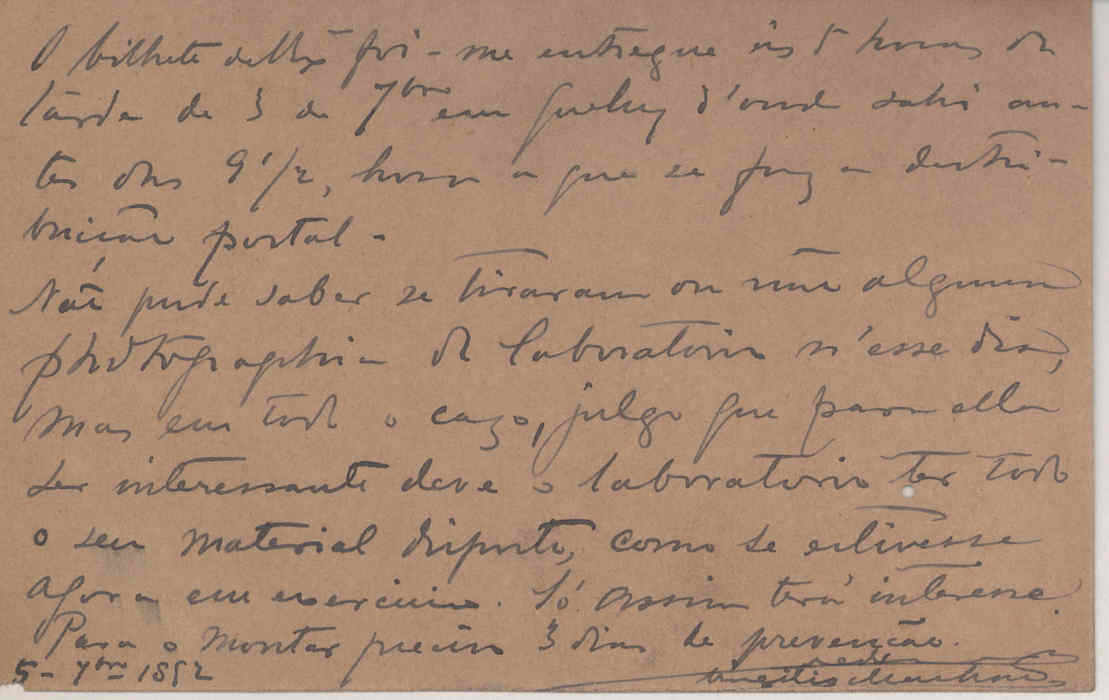 O bilhete de V. Exª foi-me entregue ás 5 horas da
tarde de 3 de 7bro em Queluz d'onde sahi an-
tes das 9 1/2, hora a que se faz a destri-
buição postal -
Não pude saber se tiraram ou não alguma
photographia do laboratorio n'esse dia,
mas em todo o cazo, julgo que para ella
ser interessante deve o laboratorio ter todo
o seu material disposto, como se estivesse
agora em exercicio. Só assim terá interesse.
Para o montar preciso 3 dias de prevenção.
5 - 7bro 1892